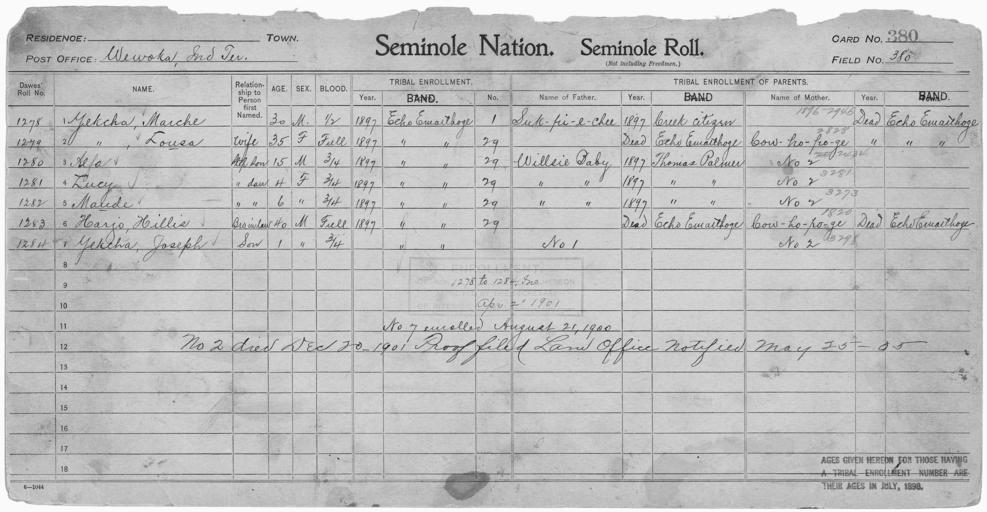 RESIDENCE: TOWN.
POST OFFICE: Wewoka, Ind Ter.
Seminole Nation. Seminole Roll.
(Not including Freedmen.)
CARD NO. 380
FIELD NO. 380
Dawes' Roll No. NAME. Relationship to Person first Named. AGE. SEX. BLOOD. TRIBAL ENROLLMENT. TRIBAL ENROLLMENT OF PARENTS.
Year. BAND. No. Name of Father. Year. BAND Name of Mother. Year. BAND.
1278 1 Yekcha, Marche 30 M. 1/2 1897 Echo Emaithoge 1 Suk-pi-e-chee 1897 Creek citizen Dead Echo Emaithoge
1279 2 " , Lousa Wife 35 F Full 1897 " " 29 Dead Echo Emaithoge Cow-ho-po-ge " " "
1280 3 Afa Stp Son 15 M 3/4 1897 " " 29 Willsie Baby 1897 Thomas Palmer No 2
1281 4 Lucy " dau 4 F 3/4 1897 " " 29 " " 1897 " " No 2
1282 5 Maude " " 6 " 3/4 1897 " " 29 " " 1897 " " No 2
1283 6 Harjo, Hillis Bro in law 40 M Full 1897 " " 29 Dead Echo Emaithoge Cow-ho-po-ge Dead Echo Emaithoge
1284 7 Yekcha, Joseph Son 1 " 3/4 " " No 1 No 2
8
9 1278 to 1284, Inc
10 Apr 2 1901
11 No 7 enrolled August 21, 1900
12 No 2 died Dec 20 1901 Proof filed Land Office notified May 25-05
13
14
15
16
17
18
AGES GIVEN HEREON FOR THOSE HAVING
A TRIBAL ENROLLMENT NUMBER ARE
THEIR AGES IN JULY, 1898.
6—1044